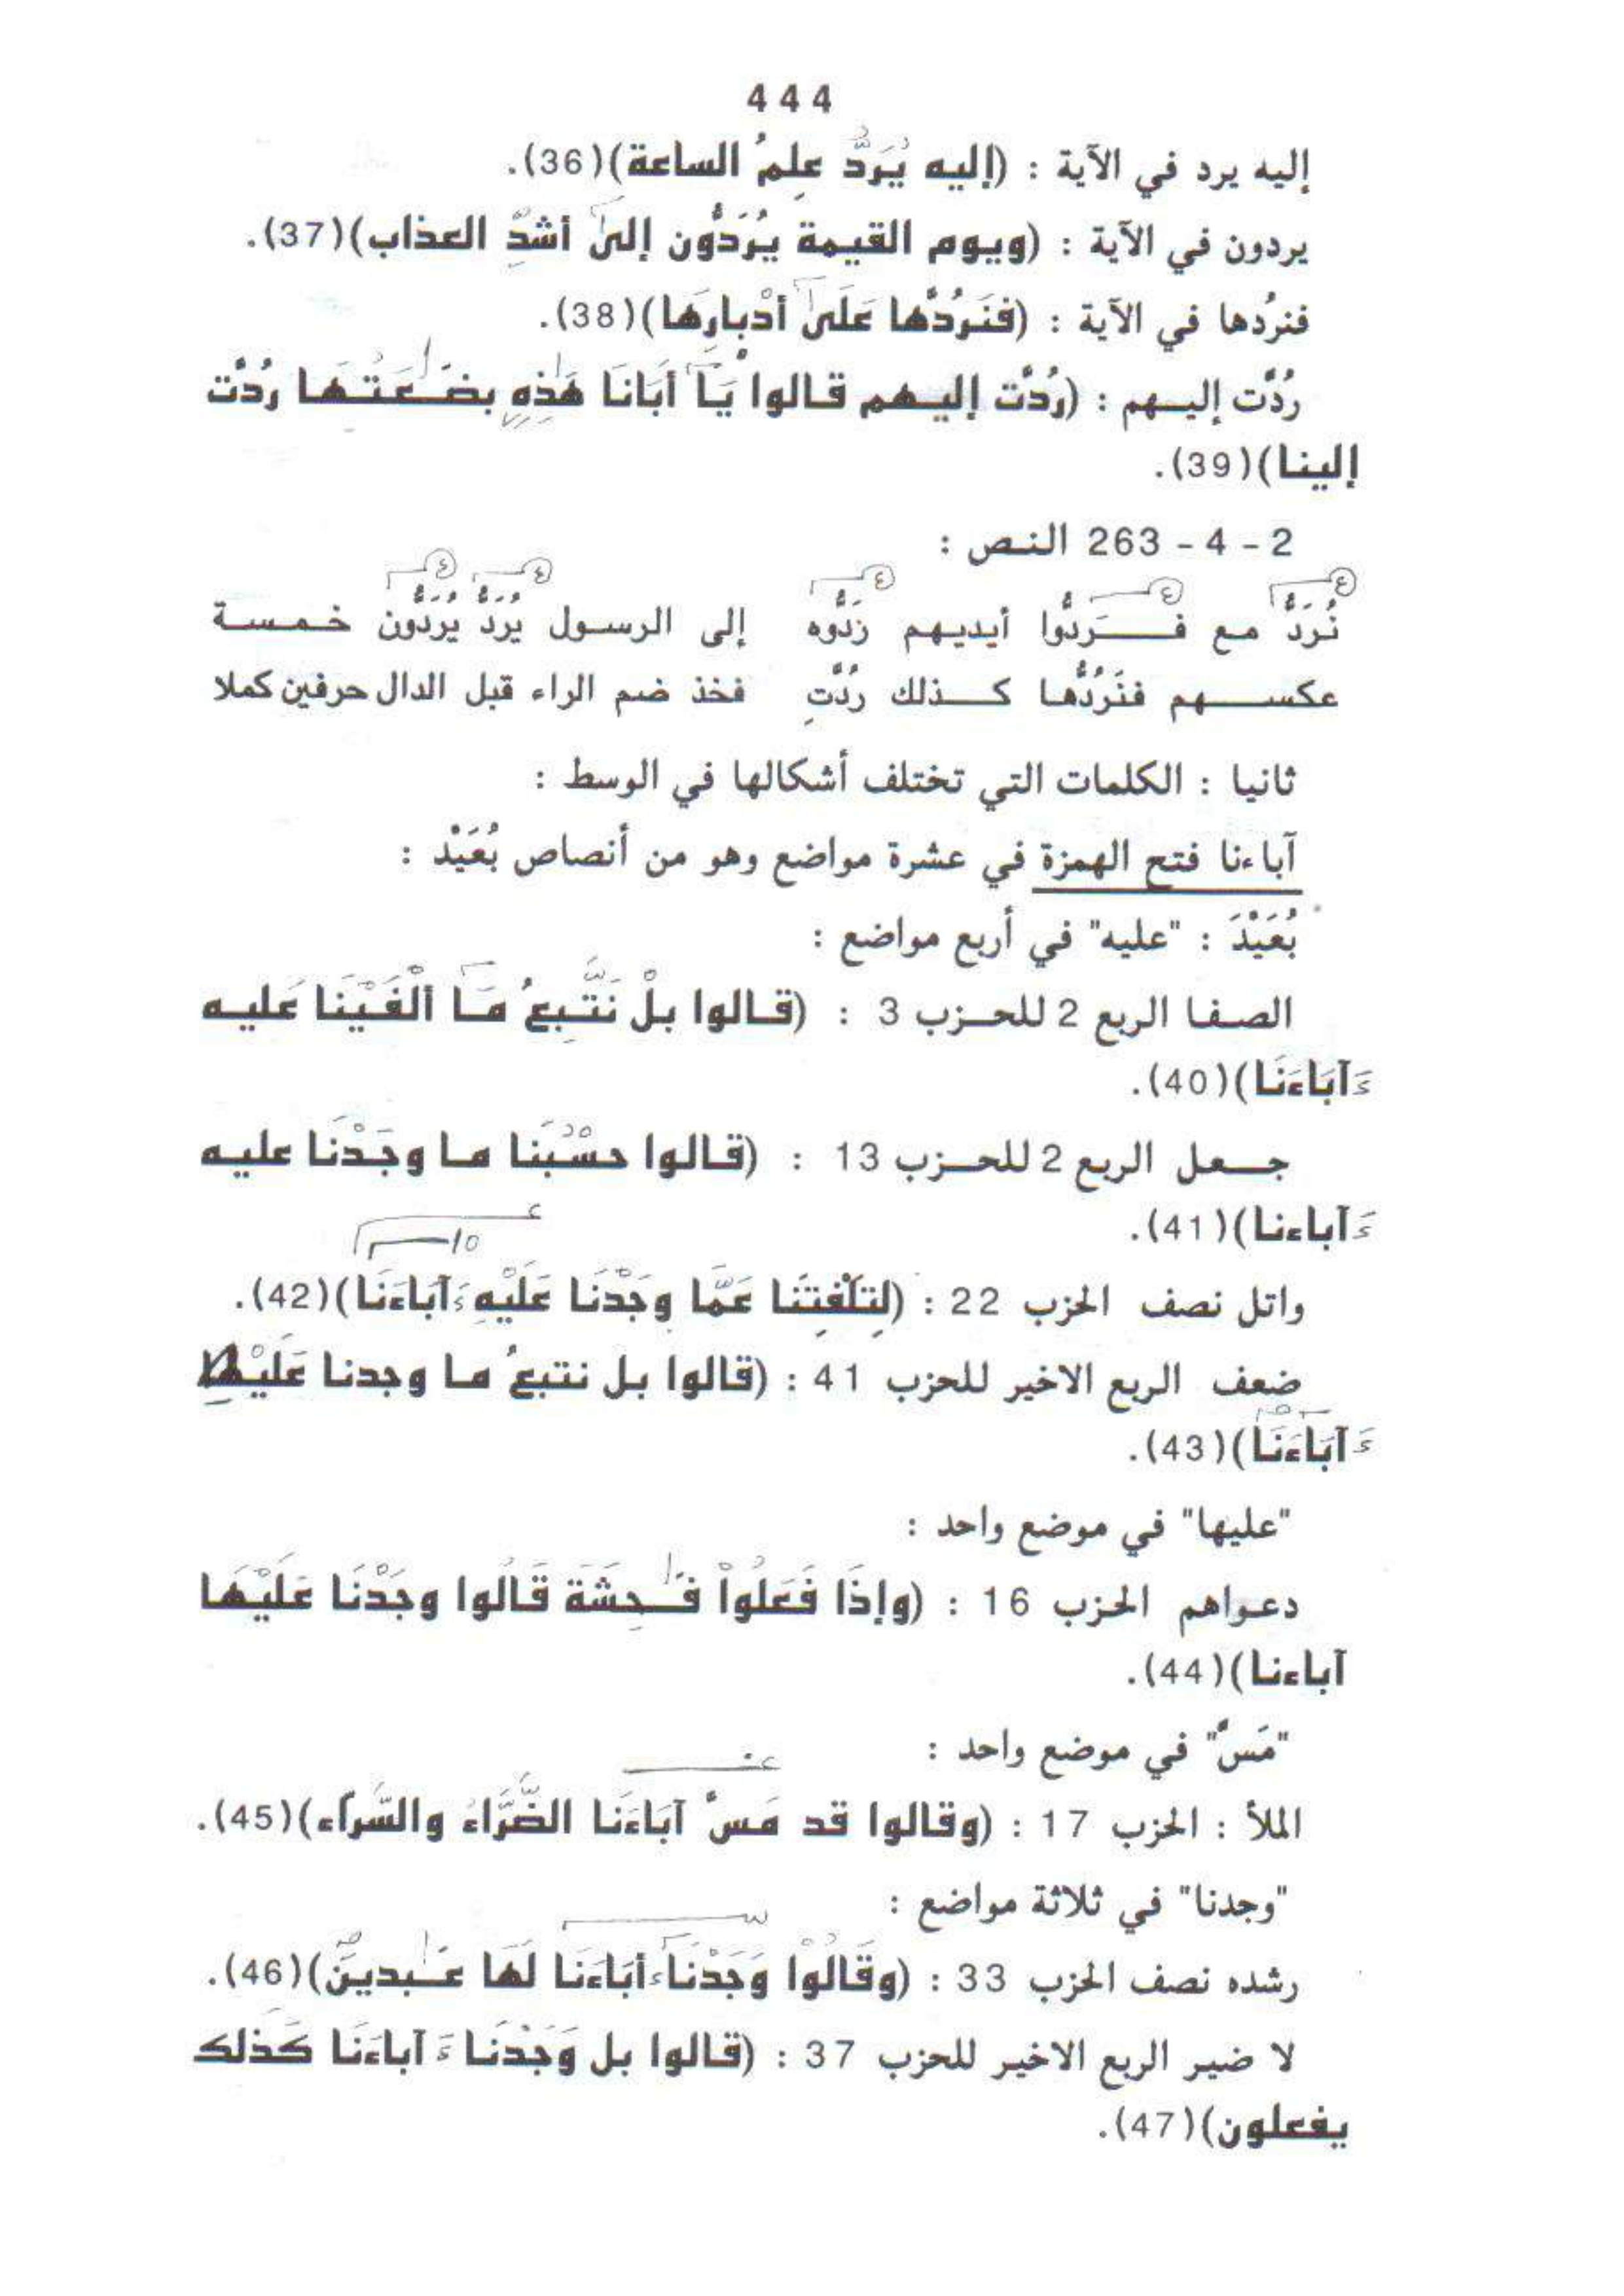 444
إليه يرد في الآية : (إليه يُرَدُّ عِلمُ الساعة)(36).
يردون في الآية : (ويوم القيمة يُرَدُّون إلىٰ أشدِّ العذاب)(37).
فنردُها في الآية : (فنَرُدَّها عَلَىٰ أدْبارِهَا)(38).
رُدَّت إليهم : (رُدَّت إليهم قالوا يَا أبَانَا هَٰذِهِ بضَٰعَتُهَا رُدَّت
إلينا)(39).
2 - 4 - 263 النص :
نُرَدُّ مع فَرَدُّوا أيديهم رَدُّوه إلى الرسول يُرَدُّ يُرَدُّون خمسة
عكسهم فنَرُدَّها كذلك رُدَّتِ فخذ ضم الراء قبل الدال حرفين كملا
ثانيا : الكلمات التي تختلف أشكالها في الوسط :
آباءنا فتح الهمزة في عشرة مواضع وهو من أنصاص بُعَيْد :
بُعَيْدَ : "عليه" في أربع مواضع :
الصفا الربع 2 للحزب 3 : (قالوا بلْ نَتَّبِعُ مَا ألْفَيْنَا عَليه
ءَآبَاءَنَا)(40).
جعل الربع 2 للحزب 13 : (قالوا حسْبُنا ما وجَدْنا عليه
ءَآباءنا)(41).
ع
10
واتل نصف الحزب 22 : (لِتَلْفِتَنَا عَمَّا وجَدْنَا عَلَيْهِ ءَآبَاءَنَا)(42).
ضعف الربع الاخير للحزب 41 : (قالوا بل نتبعُ ما وجدنا عَلَيْه
ءَآبَاءَنَا)(43).
"عليها" في موضع واحد :
دعواهم الحزب 16 : (وإذَا فَعَلُواْ فَٰحِشَةً قَالُوا وجَدْنَا عَلَيْهَا
آباءنا)(44).
"مَسَّ" في موضع واحد :
الملأ : الحزب 17 : (وقالوا قد مَسَّ آبَاءَنا الضَّرَّاءُ والسَّراء)(45).
"وجدنا" في ثلاثة مواضع :
رشده نصف الحزب 33 : (وقَالُواْ وَجَدْنَا ءَابَاءَنَا لَهَا عَٰبدينَ)(46).
لا ضير الربع الاخير للحزب 37 : (قالوا بل وَجَدْنَا ءَآباءَنَا كَذلك
يفعلون)(47).